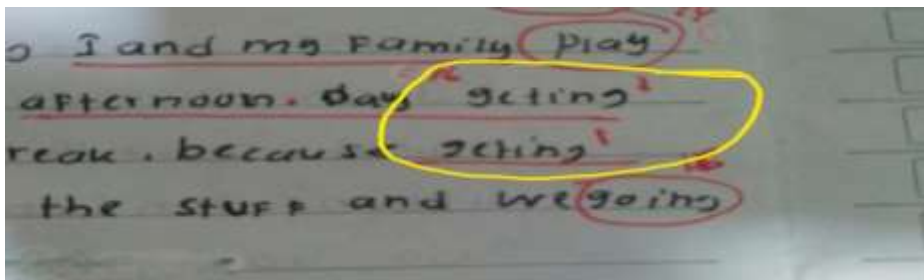 I and my Family Play
afternoon. day geting
reak. because geting
the stuff and we going